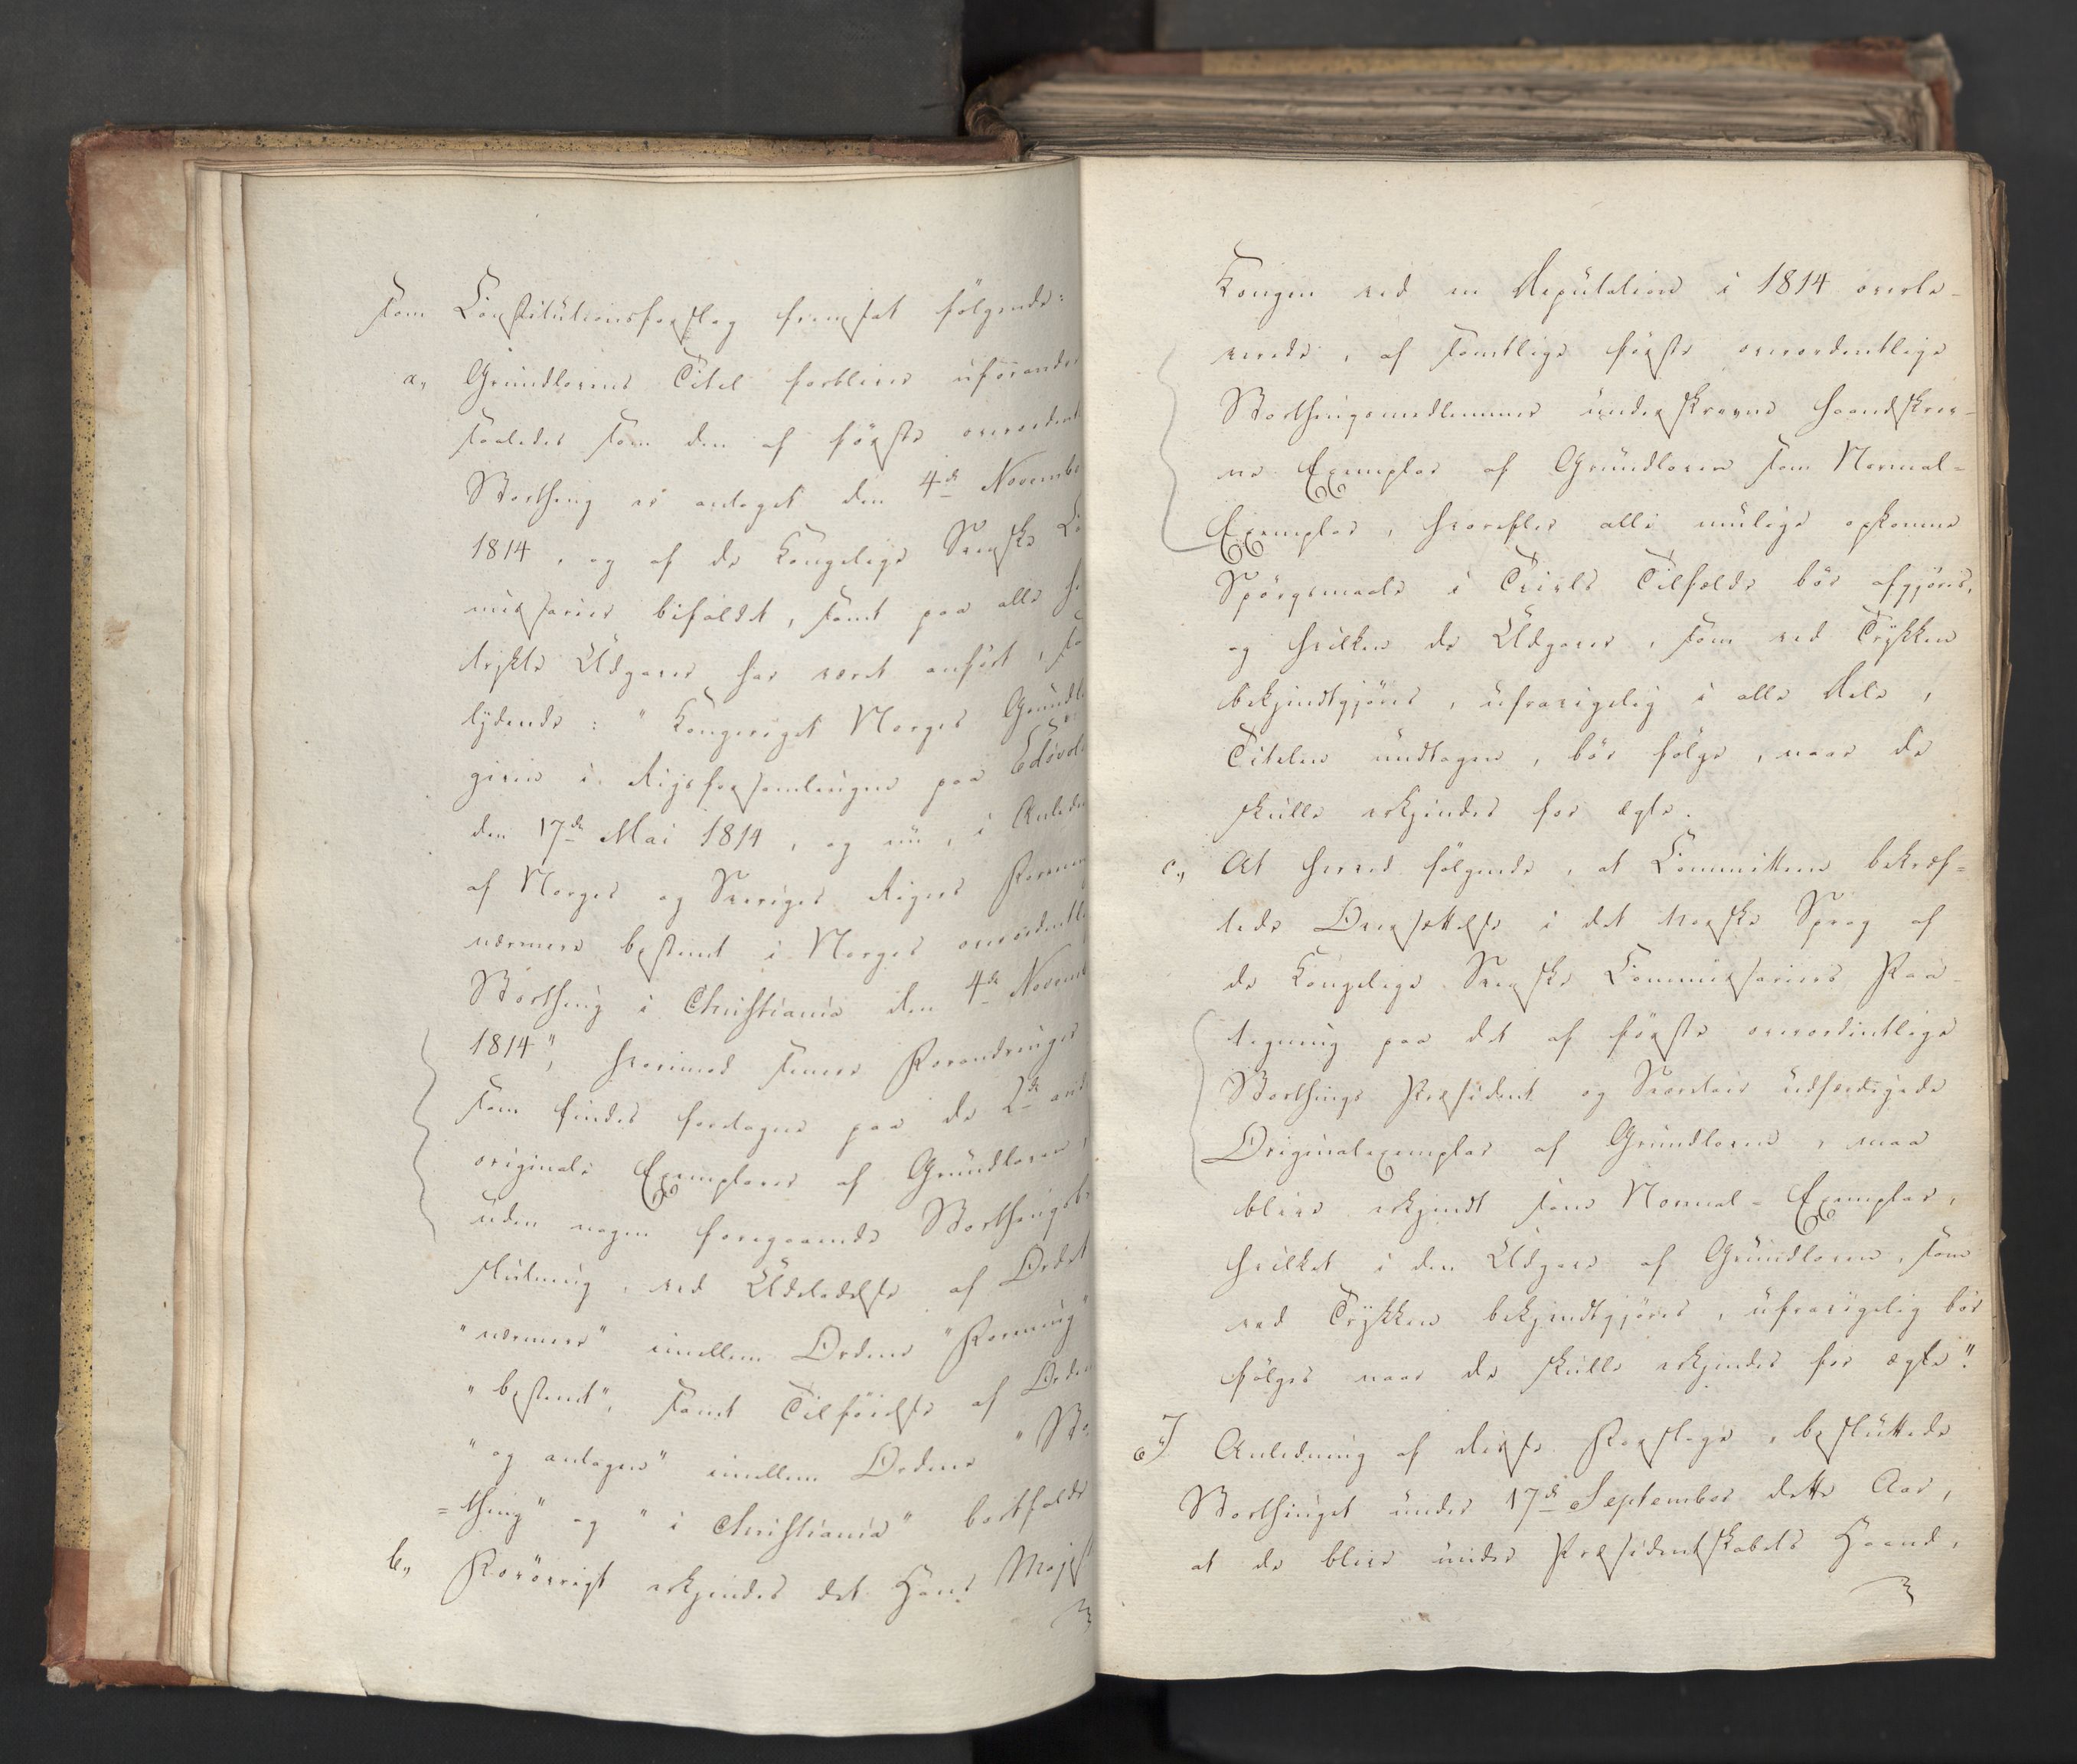 som Constitutionsforslag fremsat følgende:
a., Grundlovens Titel forbliver uforandre
saaledes som den af første overordent
Storthing er antaget den 4de Novembe
1814, og af de Kongelige Svenske Co
missarier bifaldt, samt paa alle
trykte Udgaver har været anført, 
lydende: "Kongeriget Norges Grundl
given i Rigsforsamlingen paa Edsvol
den 17de Mai 1814, og nu, i Anledn
af Norges og Sveriges Rigers Foreni
nærmere bestemt i Norges overordentl
Storthing i Christiania den 4de Novem
1814", hvorimod senere Forandringer
som findes foretagne paa de 2de 
originale Exemplarer af Grundloven,
uden nogen foregaaende Storthingsbe
slutning, ved Udeladelse af Ordet
"nærmere" imellem Ordene "Forening"
"bestemt", samt Tilføielse af Orden
"og antagen" imellem Ordene "Stor
=thing" og "i Christiania" bortfalde
b., Forøvrigt erkjendes det Hans Majest
Kongen ved en Deputation i 1814 overle-
verede, af samtlige første overordentlige
Storthingsmedlemmer underskrevne haandskrev-
ne Exemplar af Grundloven som Normal-
Exemplar, hvorefter alle mulige opkomne
Spørgsmaale i Tvivls Tilfælde bør afgjøres,
og hvilken de Udgaver, som ved Trykken
bekjendtgjøres, ufravigelig i alle Dele,
Titelen undtagen, bør følge, naar de
skulle erkjendes for ægte.
c., At herved følgende, at Committeen bekræf=
tede Oversættelse i det norske Sprog af
de Kongelige Svenske Commissariers Paa-
tegning paa det af første overordentlige
Storthings Præsident og Secretair udfærdigede
Originalexemplar af Grundloven, maa
blive erkjendt som Normal-Exemplar,
hvilket i den Udgave af Grundloven, som
ved Trykken bekjendtgjøres, ufravigelig bør
følges naar de skulle erkjendes for ægte".
I Anledning af disse Forslage, besluttede
Storthinget under 17de September dette Aar,
at de blive under Præsidentskabets Haand,